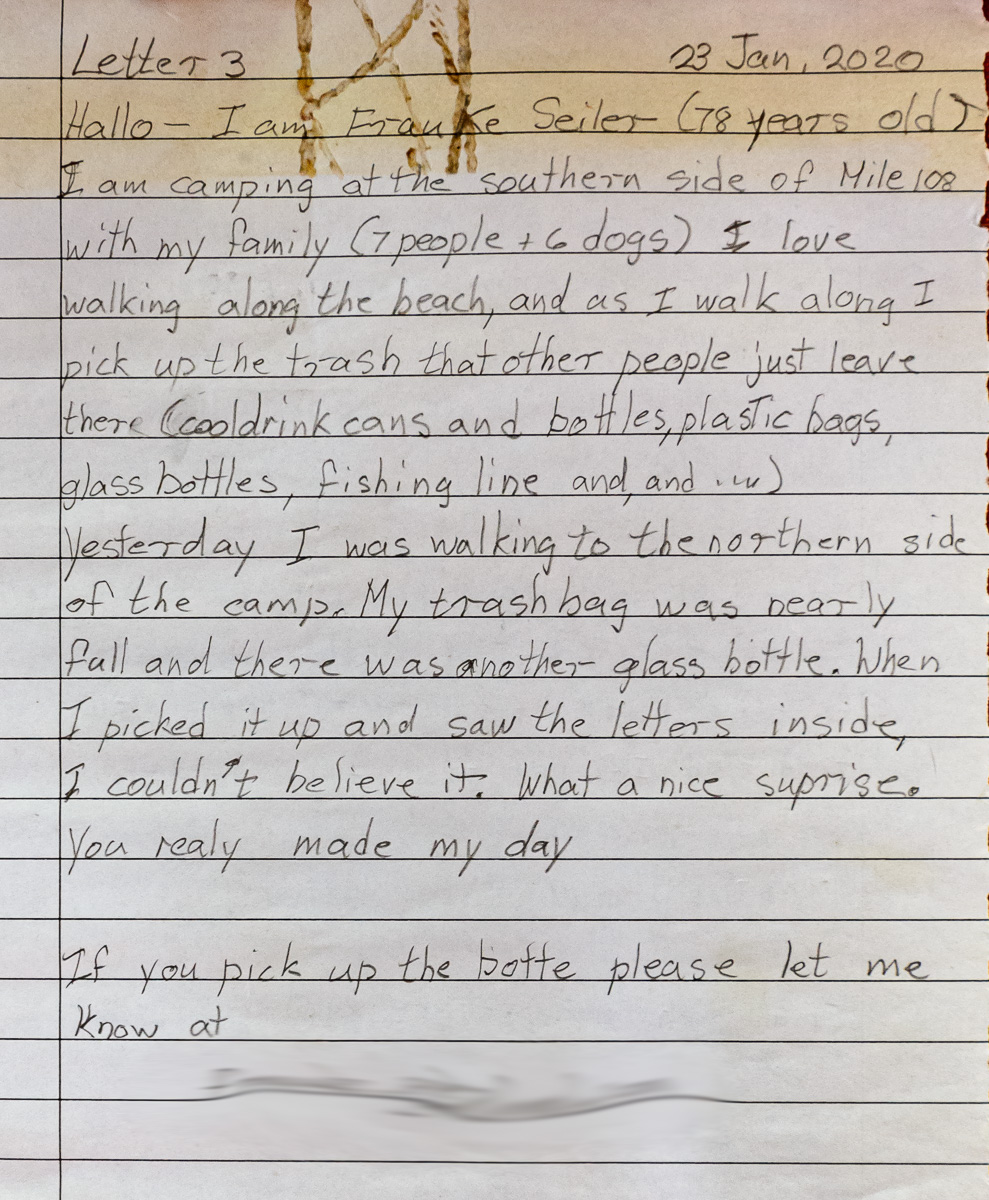 Letter 3 23 Jan, 2020
Hallo - I am Frauke Seiler (78 years old)
I am camping at the southern side of Mile 108
with my family (7 people + 6 dogs) I love
walking along the beach, and as I walk along I
pick up the trash that other people just leave
there (cooldrink cans and bottles, plastic bags,
glass bottles, fishing line and, and ...)
Yesterday I was walking to the northern side
of the camp. My trash bag was nearly
full and there was another glass bottle. When
I picked it up and saw the letters inside,
I couldn't believe it. What a nice suprise.
You realy made my day
If you pick up the botte please let me
know at